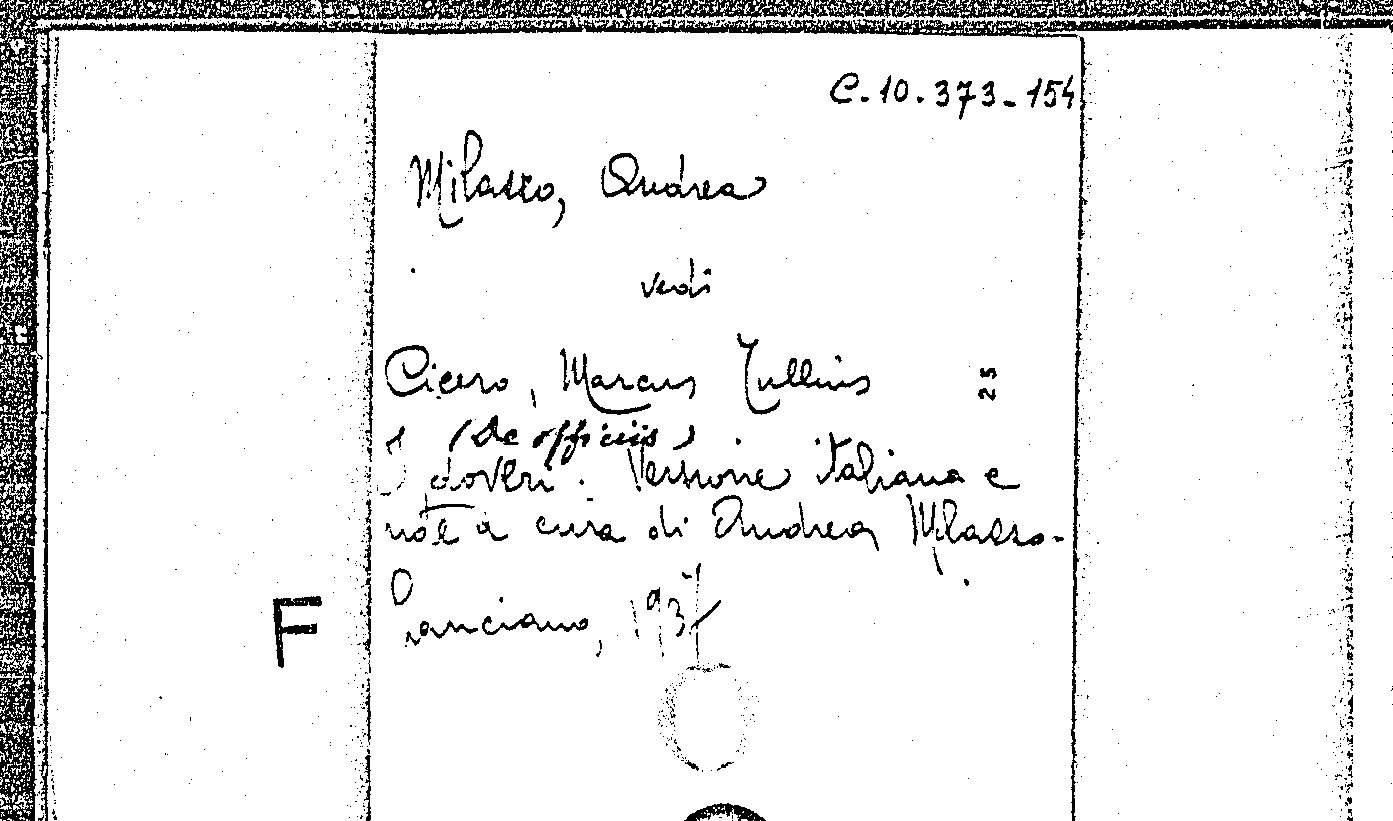 C.10.373-154
Milasso, Andrea
vedi
Cicero, Marcus Tullius
25
(De officiis)
I doveri. Versione italiana e
note a cura di Andrea Milasso.
F
Lanciano, 1937